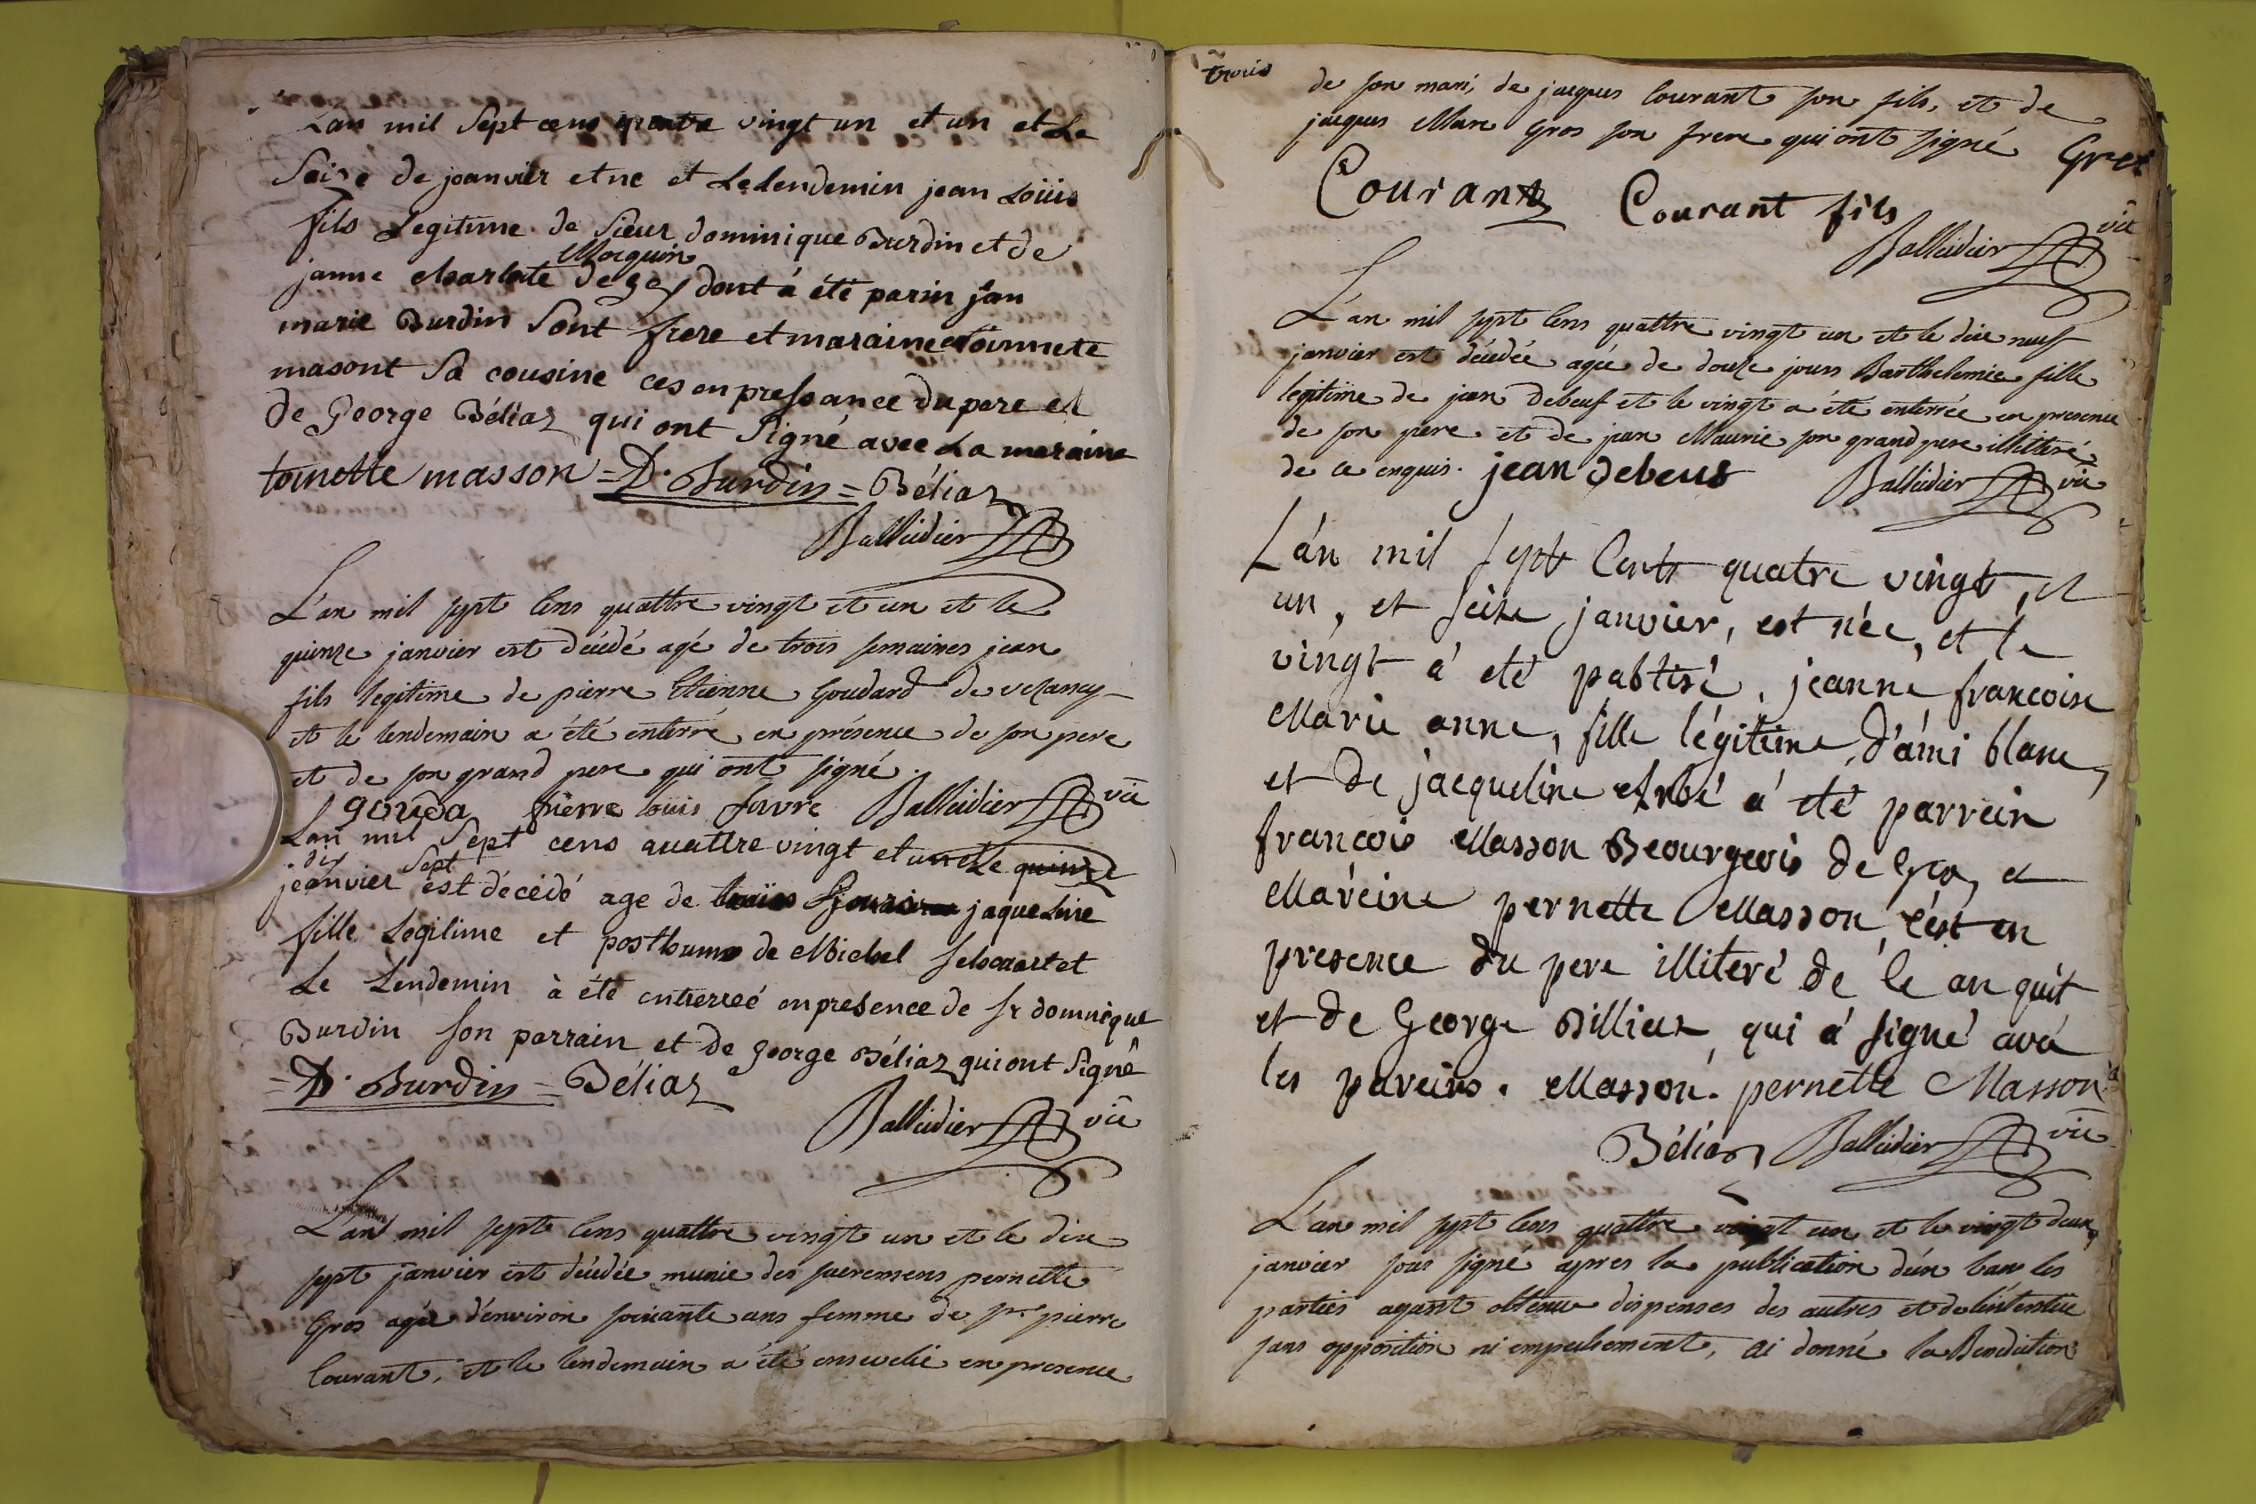 Lan mil Sept cens quatre vingt un et un et Le
Seize de joanvier etne et Le lendemin jean Loüis
fils Legitime de Sieur dominique Burdin et de
Mocquin
janne charlote de gex dont á été parin jan
marie Burdin Sont frere et maraine toinnete
masont Sa cousine ces en pressance du pere et
de George Béliaz qui ont Signé avec La maraine
toinette masson = D. Burdin = Béliaz
Balleidier
L'an mil sept cens quattre vingt et un et le
quinze janvier est décédé agé de trois semaines jean
fils legitime de pierre Etienne Goudard de vesancy
et le lendemain a été enterré en présence de son pere
et de son grand pere qui ont signé.
gouda pierre louis favre Balleidier vic
Lan mil Sept cens quattre vingt et un et Le quinze
dix Sept
jeanvier est décédé age de jours jaqueline
fille Legitime et posthume de Michel
Le Lendemin à été entierreé en presence de Sr domnique
Burdin son parrain et de george Béliaz qui ont Signé
= D. Burdin = Béliaz
Balleidier vic
L'an mil sept cens quattre vingt un et le dix
sept janvier est décédée munie des sacremens pernette
Gros agée d'environ soixante ans femme de Sr pierre
Courant, et le lendemain a été ensevelie en presence
trois
de son mari, de jacques Courant son fils, et de
jacques Marc Gros son frere qui ont signé Gros
Courant Courant fils
Balleidier vic
L'an mil sept cens quattre vingt un et le dix neuf
janvier est décédée agée de douze jours Barthelemie fille
legitime de jean Debeuf et le vingt a été enterrée en presence
de son pere et de jean Maurie son grand pere illiteré
de ce enquis. jean debeuf Balleidier vic
L'án mil sept Cents quatre vingt, et
un, et seize janvier, est née, et le
vingt a' eté pabtisé, jeanne francoise
Marie anne, fille légitime, d'ámi blanc,
et de jacqueline á eté parrein
francois Masson Beourgeois de Gex, et
Máreine pernette Masson, c'est en
presence du pere illiteré de ce an quit
et de George Billiaz, qui á signé avá
les pareins. Masson. pernette Masson
Béliaz Balleidier vic
L'an mil sept cens quattre vingt un et le vingt deux
janvier sous signé apres la publication d'un ban les
parties ayant obtenu dispenses des autres et de l'interstice
sans opposition ni empechement, ai donné la Benediction